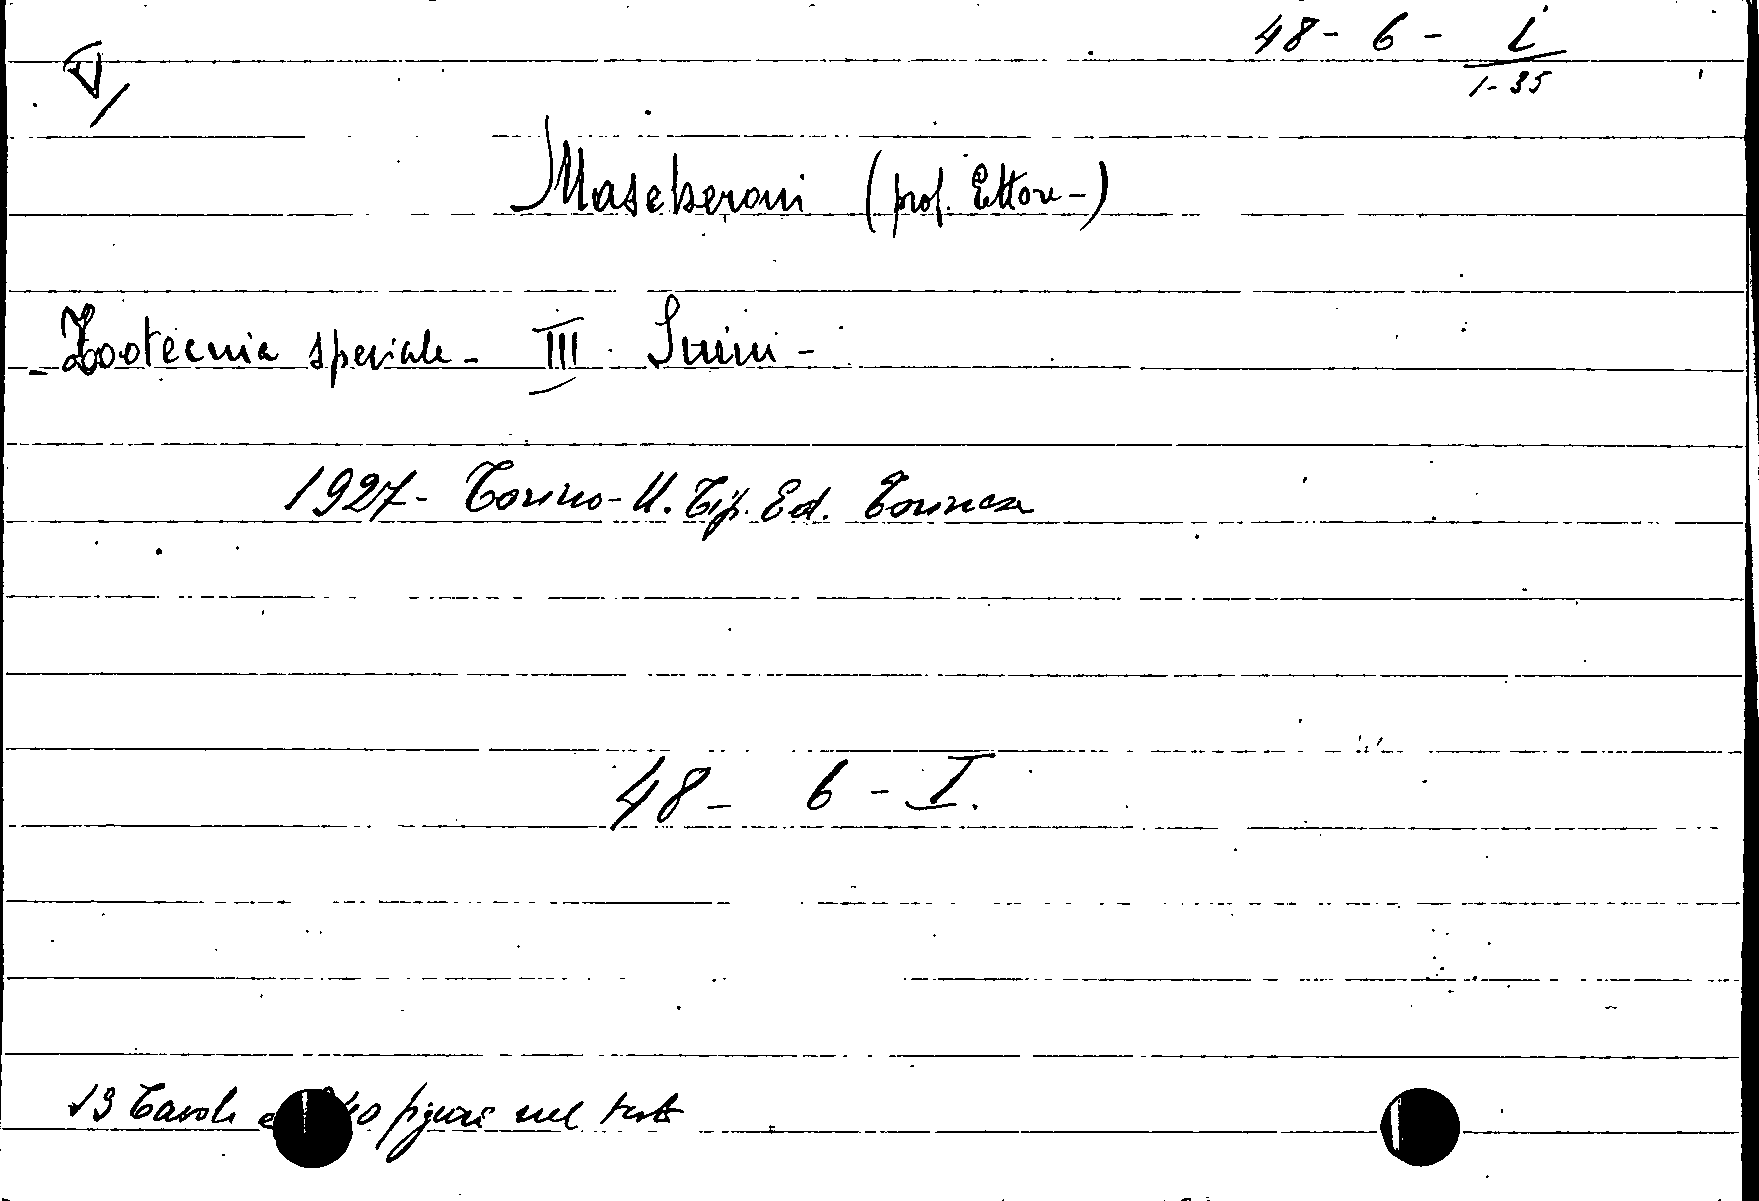 48 - 6 - I
1-35
Mascheroni (prof. Ettore -)
- Zootecnia speciale - III Suini -
1927 - Torino - U. Tip. Ed. Torinese
48 - 6 - I.
13 Tavole e figure nel testo